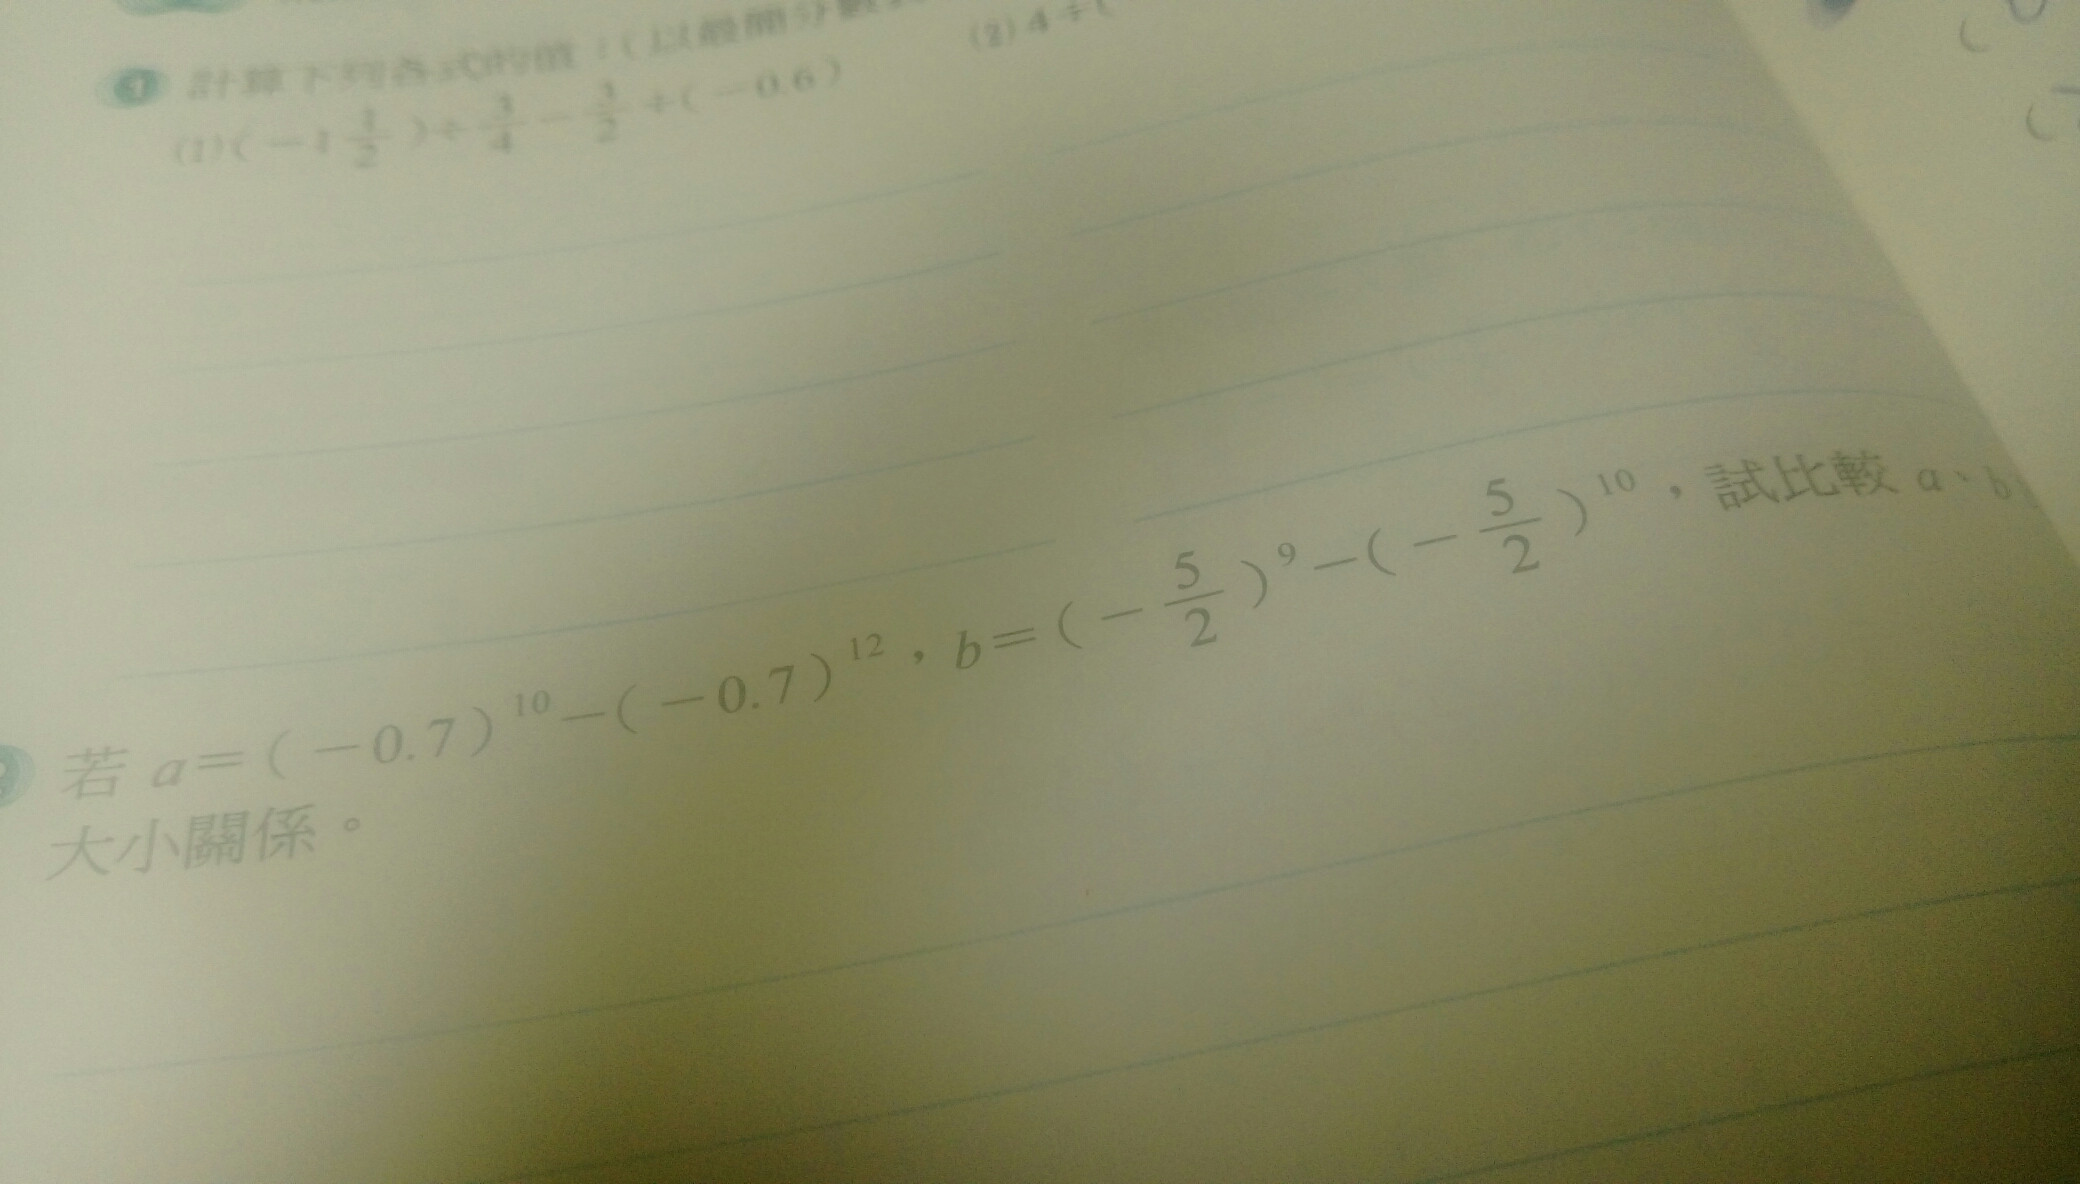 計算下列各式的值：(以最簡分數
(1)(－1\frac{1}{2})÷\frac{3}{4}－\frac{3}{2}÷(－0.6) (2) 4÷(
若 a＝(－0.7)^{10}－(－0.7)^{12}，b＝(－\frac{5}{2})^{9}－(－\frac{5}{2})^{10}，試比較 a、b
大小關係。